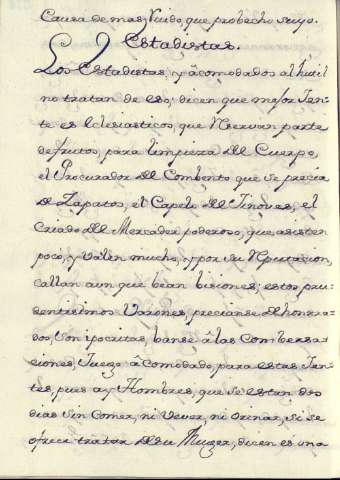 Causa de mas Ruido, que probecho suyo.
Estadistas.
Los Estadistas, y âcomodados al hutil
no tratan de eso; dicen que mejor Jen-
te es Eclesiasticos, que Reservan parte
de frutos, para limpieza del Cuerpo,
el Procurador del Combento que se precia
de Zapatos, el Capelo del Jinoves, el
Criado del Mercader poderoso, que asisten
poco, y valen mucho, y por su Reputacion,
callan aun que bean bisiones; estos pru-
dentisimos Varones, precianse de honrra-
dos, son ipocritas, banse â las Combersa-
ciones, Juego âcomodado, para estas Jen-
tes, pues ay Hombres, que se estan dos
dias sin Comer, ni Vever, ni orinar, si se
ofrece tratar de su Muger, dicen es una